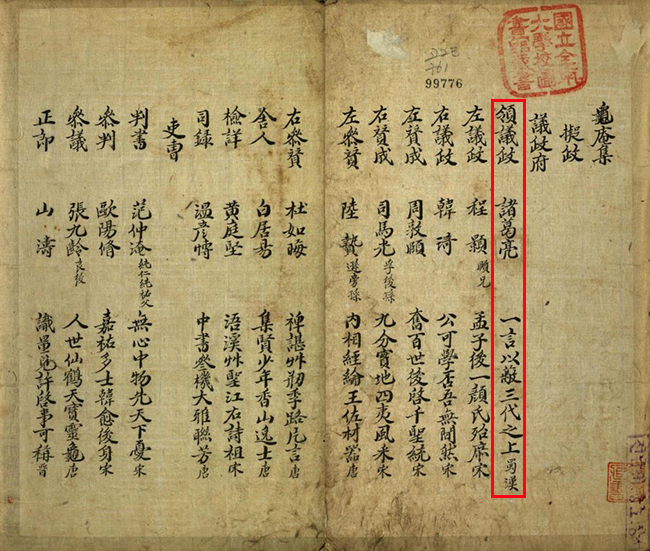 國立全南
大學校圖
書館藏書
99776
龜庵集
擬政
議政府
領議政 諸葛亮 一言以蔽三代之上 蜀漢
左議政 程顥 頤兄 孟子後一顏氏殆庶 宋
右議政 韓琦 公可學否吾無間然 宋
左贊成 周敦頤 奮百世後啓千聖統 宋
右贊成 司馬光 孚後孫 九分實地四夷風采 宋
左參贊 陸贄 遜旁孫 內相經綸王佐材器 唐
右參贊 杜如晦 裨諶艸刱季路片言 唐
舍人 白居易 集賢少年香山逸士 唐
檢詳 黃庭堅 浯溪艸聖江右詩祖 宋
司錄 溫彥博 中書參機大雅聯芳 唐
吏曹
判書 范仲淹 純仁純祐父 無心中物先天下憂 宋
參判 歐陽脩 嘉祐多士韓愈後身 宋
參議 張九齡 良後 人世仙鶴天寶靈龜 唐
正郎 山濤 識量見許啓事可稱 晉